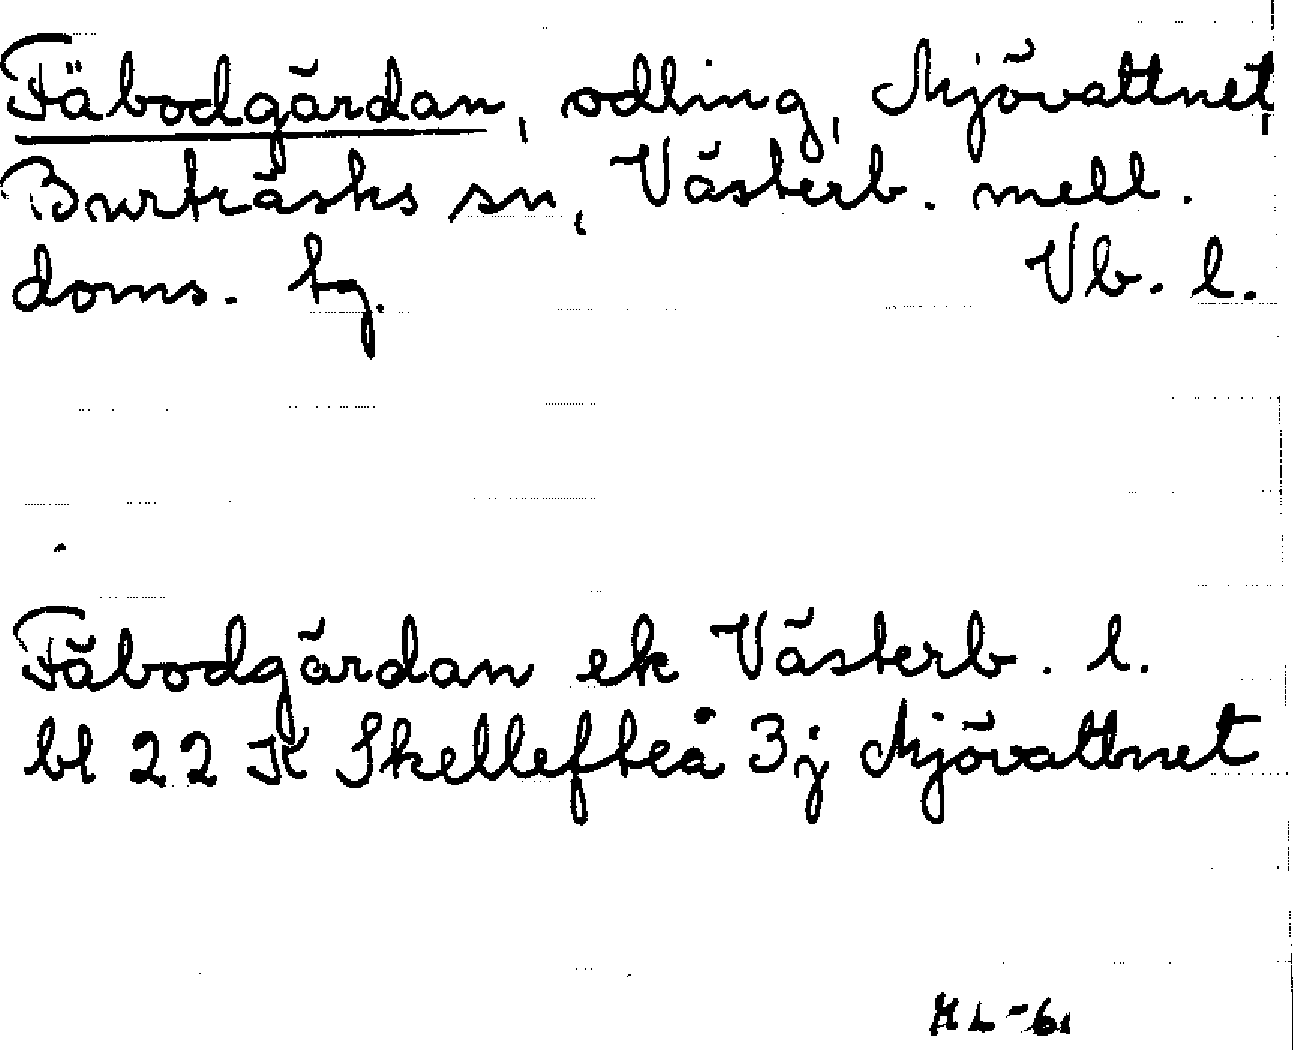 Fäbodgärdan, odling, Mjövattnet,
Burträsks sn, Västerb. mell.
doms. tg. Vb. l.
Fäbodgärdan ek Västerb. l.
bl 22 K Skellefteå 3j Mjövattnet
HL-61